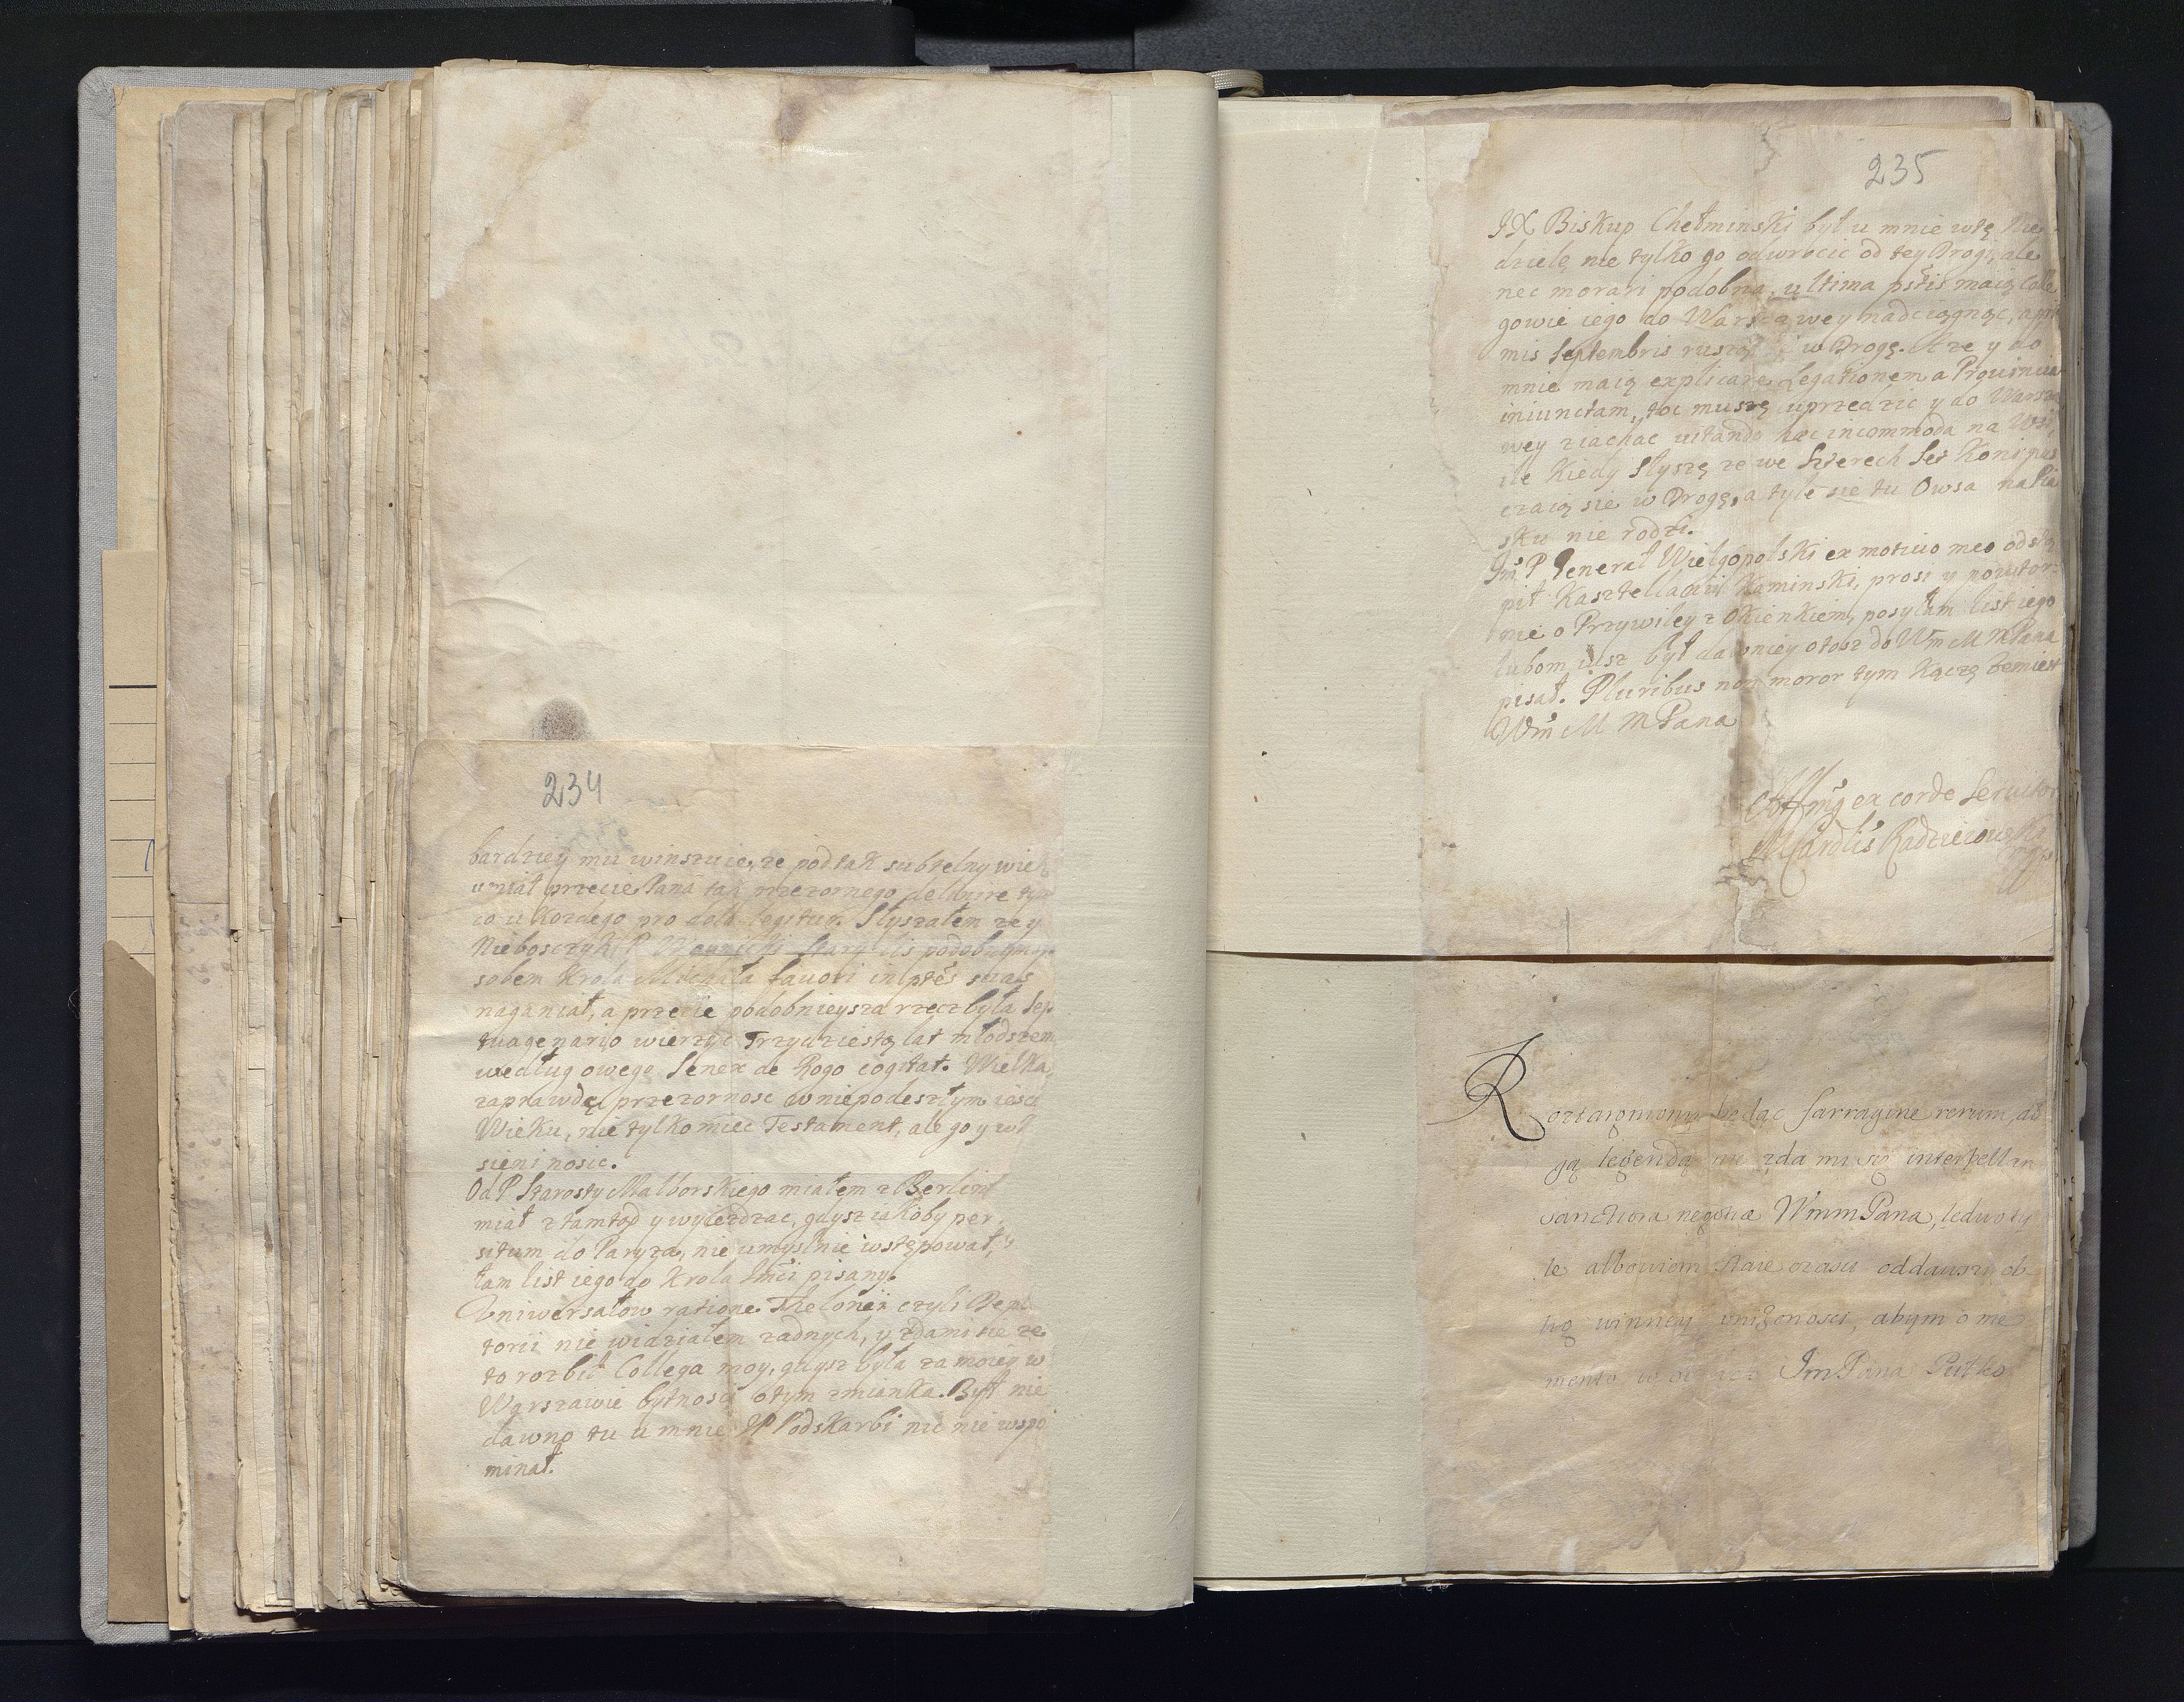 234
bardziey mu winszuię, ze pod tak subtelny wiek
umiał przecie Pana tak przezornego
co u kozdego pro dolo legitur. Słyszałem ze y
Nieboszczyk P stary lis podobnym
sobem Krola Michała fauori in ptes suas
naganiał, a przecie podobnieysza rzecz była Sep
tuagenario wierzyc Trzydziestą lat młodszem
według owego Senex de Rogo cogitat. Wielka
zaprawdę przezornosc w niepodeszłym iesce
Wieku, nie tylko miec Testament, ale go y w
sieni nosic.
Od P Starosty Malborskiego miałem z Berlin
miał ztamtąd y wyiezdzac, gdysz iakoby per
situm do Paryza, nie umyslnie wstępował,
łam list iego do Krola Imci pisany.
Vniwersałow ratione Thelonei czyli Repe
torii nie widziałem zadnych, y zda mi sie ze
to rozbił Collega moy, gdysz była za moiey w
Warszawie bytnosci otym zmianka. Był nie
dawno tu u mnie JP Podskarbi nic nie wspo
minał.
235
JX Biskup Chełminski był u mnie wtę Nie
dzielę nie tylko go odwrocic od tey Drogi, ale
nec morari podobna, ultima pntis maią Colle
gowie iego do Warszawey nadciągnąc, a pri
mis Septembris ruszą w Drogę. A ze y do
mnie maią explicare Legationem a Prouincia
iniunctam, toc muszę uprzedzic y do Warsza
wey ziachac uitando hæc incommoda na Wsi,
ile kiedy słyszę ze we Szterech Set koni pus
czaią sie w Drogę, a tyle sie tu Owsa na Pia
sku nie rodzi.
Im P General Wielgopolski ex motiuo meo odstą
pił Kasztellanii Kaminski, prosi y powtor
nie o Przywiley z Okienkiem, posyłam list iego
lubom iusz był dawniey otosz do Wm M MPana
pisał. Pluribus non moror tym kączę zemiest
Wm M MPana
ex corde Seruitor
MCardlis Radzieiowski
mpp
Roztargniony będąc farragine rerum, ad
gą legendą nie zda mi się interpellar
sanctiora negotia WmmPana, ledwo ty
le albowiem staie czasu oddawszy ob
lig winney unizonosci, abym o me
mento w ImPana Pułko